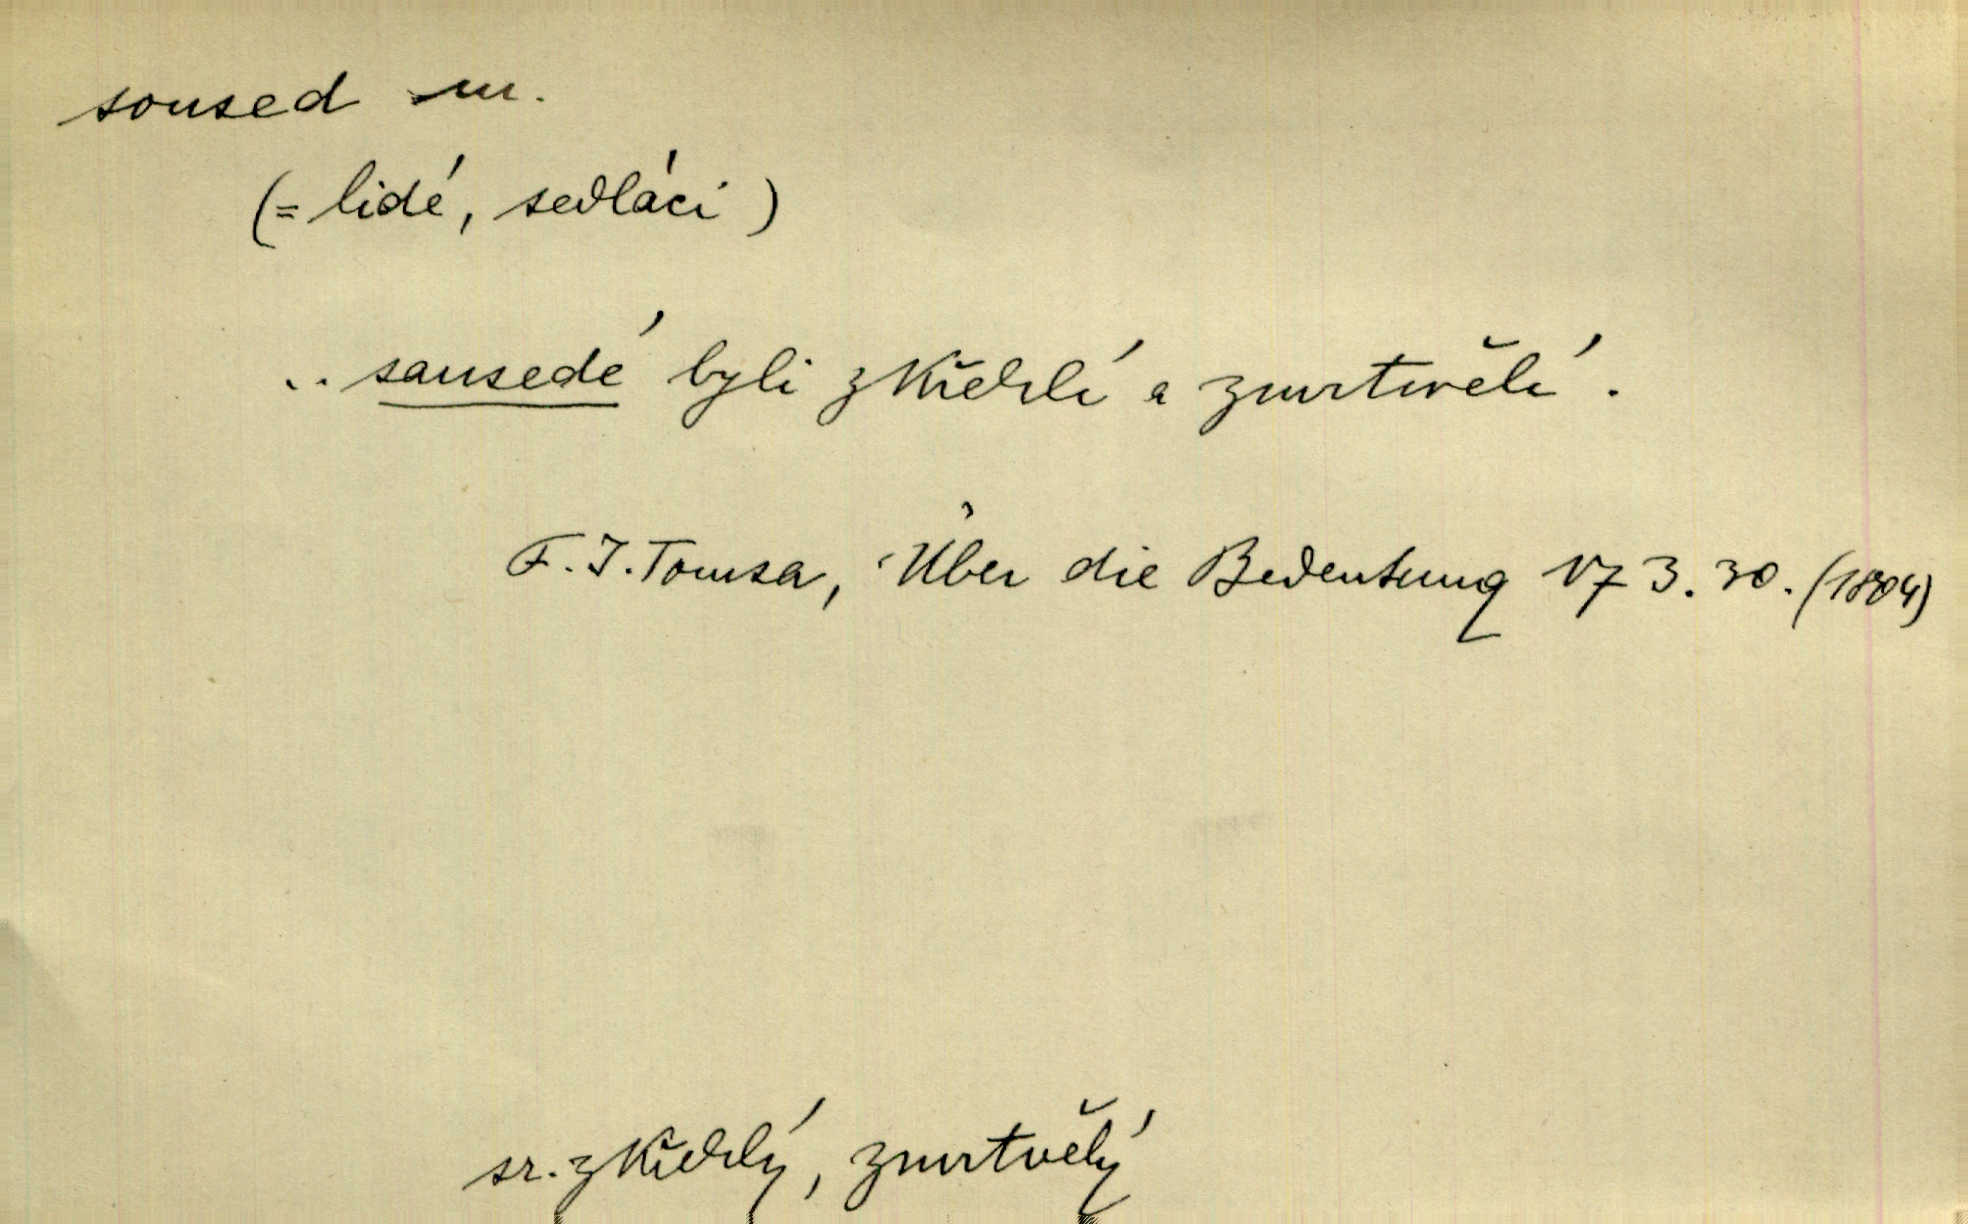 soused m.
(= lidé, sedláci)
.. sausedé byli zkřehlí a zmrtwělí.
F. J. Tomsa, Über die Bedeutung VZ 3. 30. (1804)
sr. zkřehlý, zmrtvělý